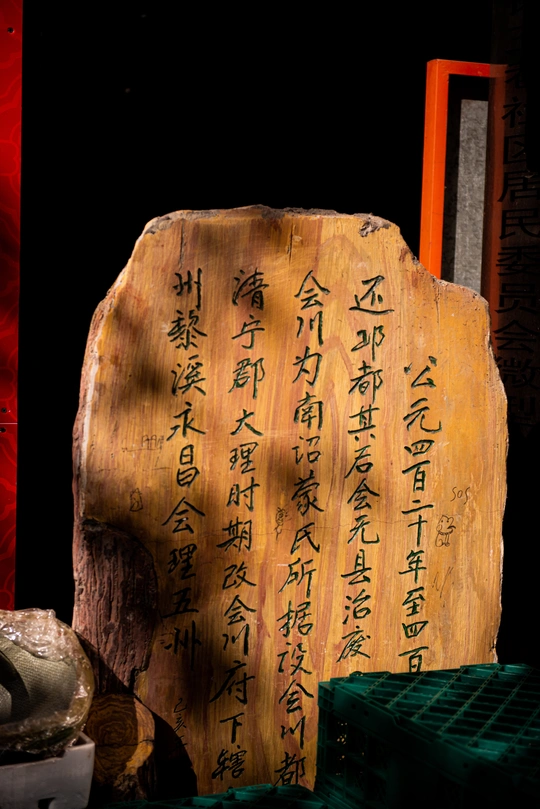 公元四百二十年至四百
还邛都其后会无县治废
会川为南诏蒙氏所据设会川都
清宁郡大理时期改会川府下辖
州黎溪永昌会理五州
己亥
SOS
社区居民委员会